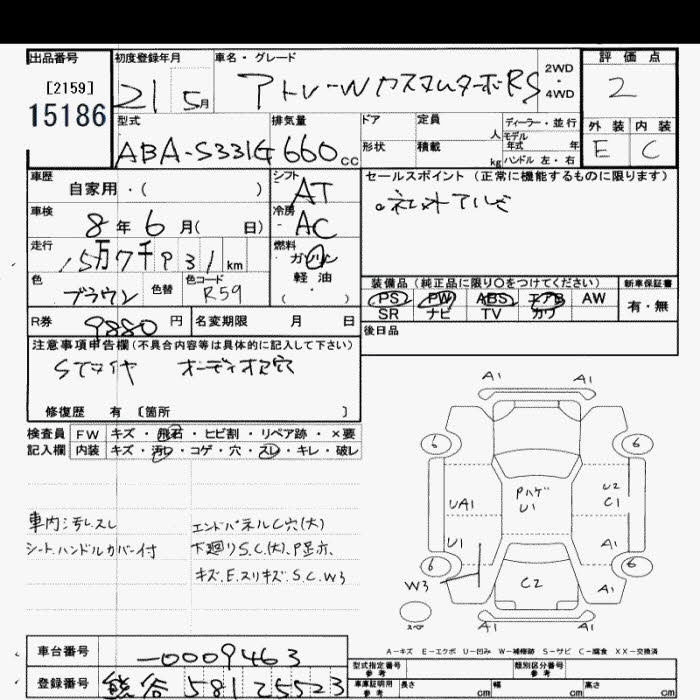 出品番号 初度登録年月 車名・グレード 2WD・4WD 評価点
[2159] 21 5月 アトレーWカスタムターボRS 2
15186 型式 排気量 ドア 定員 人 ディーラー・並行 外装 内装
ABA-S331G 660cc 形状 積載 kg モデル年式 年 ハンドル 左・右 E C
車歴 自家用・( ) シフト AT セールスポイント (正常に機能するものに限ります)
車検 8年6月( 日) 冷房 AC 。社外アルミ
走行 15万7千931km 燃料 ガソリン 軽油 ( )
色 ブラウン 色替 色コード R59 装備品 (純正品に限り○をつけてください) 新車保証書
PS PW ABS エアB AW 有・無
SR ナビ TV カワ
R券 9880円 名変期限 月 日 後日品
注意事項申告欄(不具合内容等は具体的に記入して下さい)
Sタイヤ オーディオ穴
修復歴 有 〔箇所 〕
検査員 FW キズ・飛石・ヒビ割・リペア跡・×要
記入欄 内装 キズ・汚れ・コゲ・穴・スレ・キレ・破レ
車内汚レスレ エンドパネルC穴(大)
シート、ハンドルカバー付 下廻りS.C.(大)、P
キズ.E.スリキズ.S.C.W3
A1 A1
6 6
Pハゲ U1
UA1 U2 C1
U1 A1
6 6
W3 C2 A1
スペア A1 A1
A-キズ E-エクボ U-凹み W-補修跡 S-サビ C-腐食 XX-交換済
車台番号 -0009463
型式指定番号 参考 類別区分番号 参考
登録番号 熊谷 581 て 5523
車庫証明用 参考 長さ cm 幅 cm 高さ cm